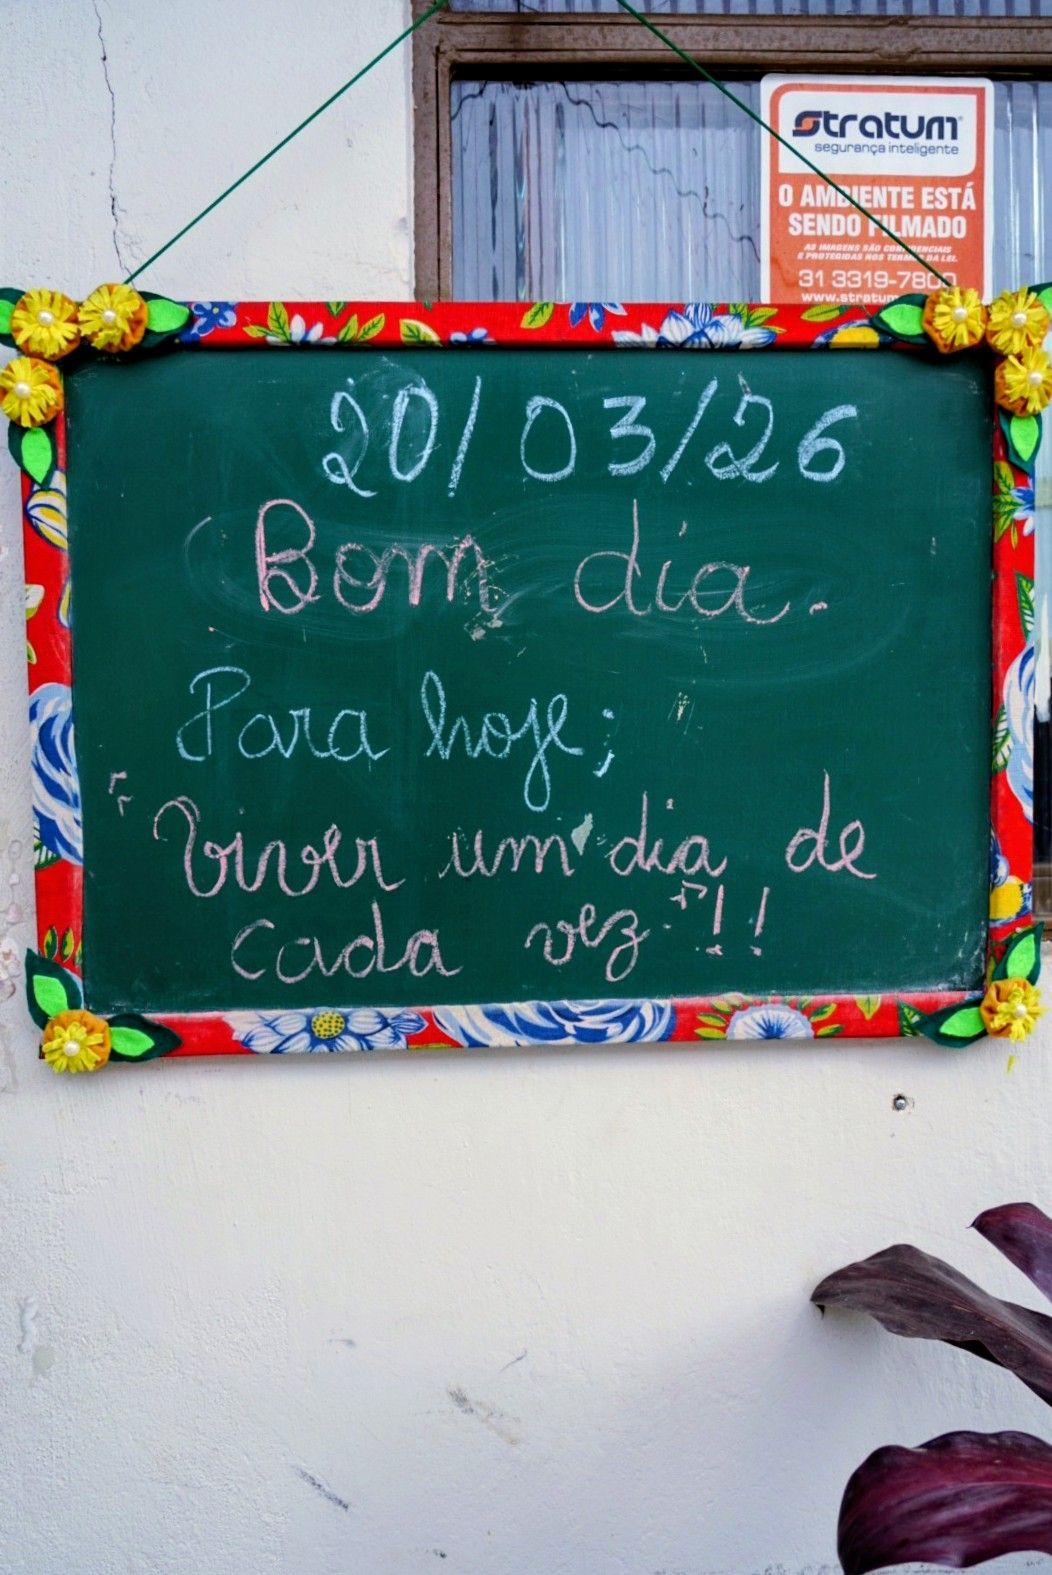 Stratum
segurança inteligente
O AMBIENTE ESTÁ
SENDO FILMADO
AS IMAGENS SÃO CONFIDENCIAIS
E PROTEGIDAS NOS TERMOS DA LEI.
31 3319-7800
www.stratum
20/03/26
Bom dia.
Para hoje;
"Viver um dia de
cada vez"!!